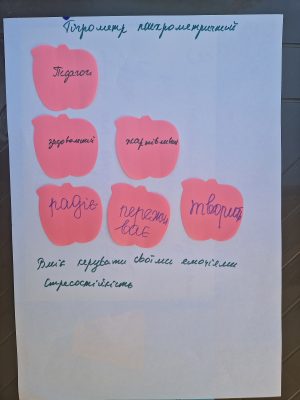 Гігрометр психрометричний
Педагог
здоровий жартівливий
радіє пережи
ває творить
Вміє керувати своїми емоціями
Стресостійкість